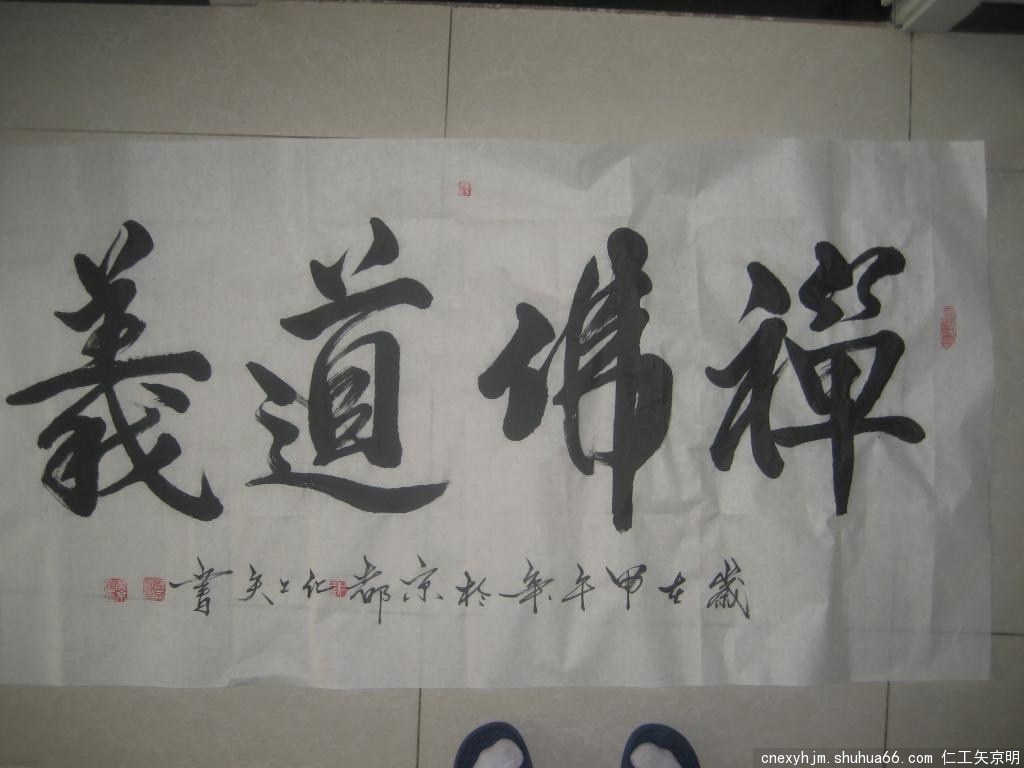 禪佛道義
歲在甲午年於京都仁工矢書
cnexyhjm.shuhua66.com 仁工矢京明